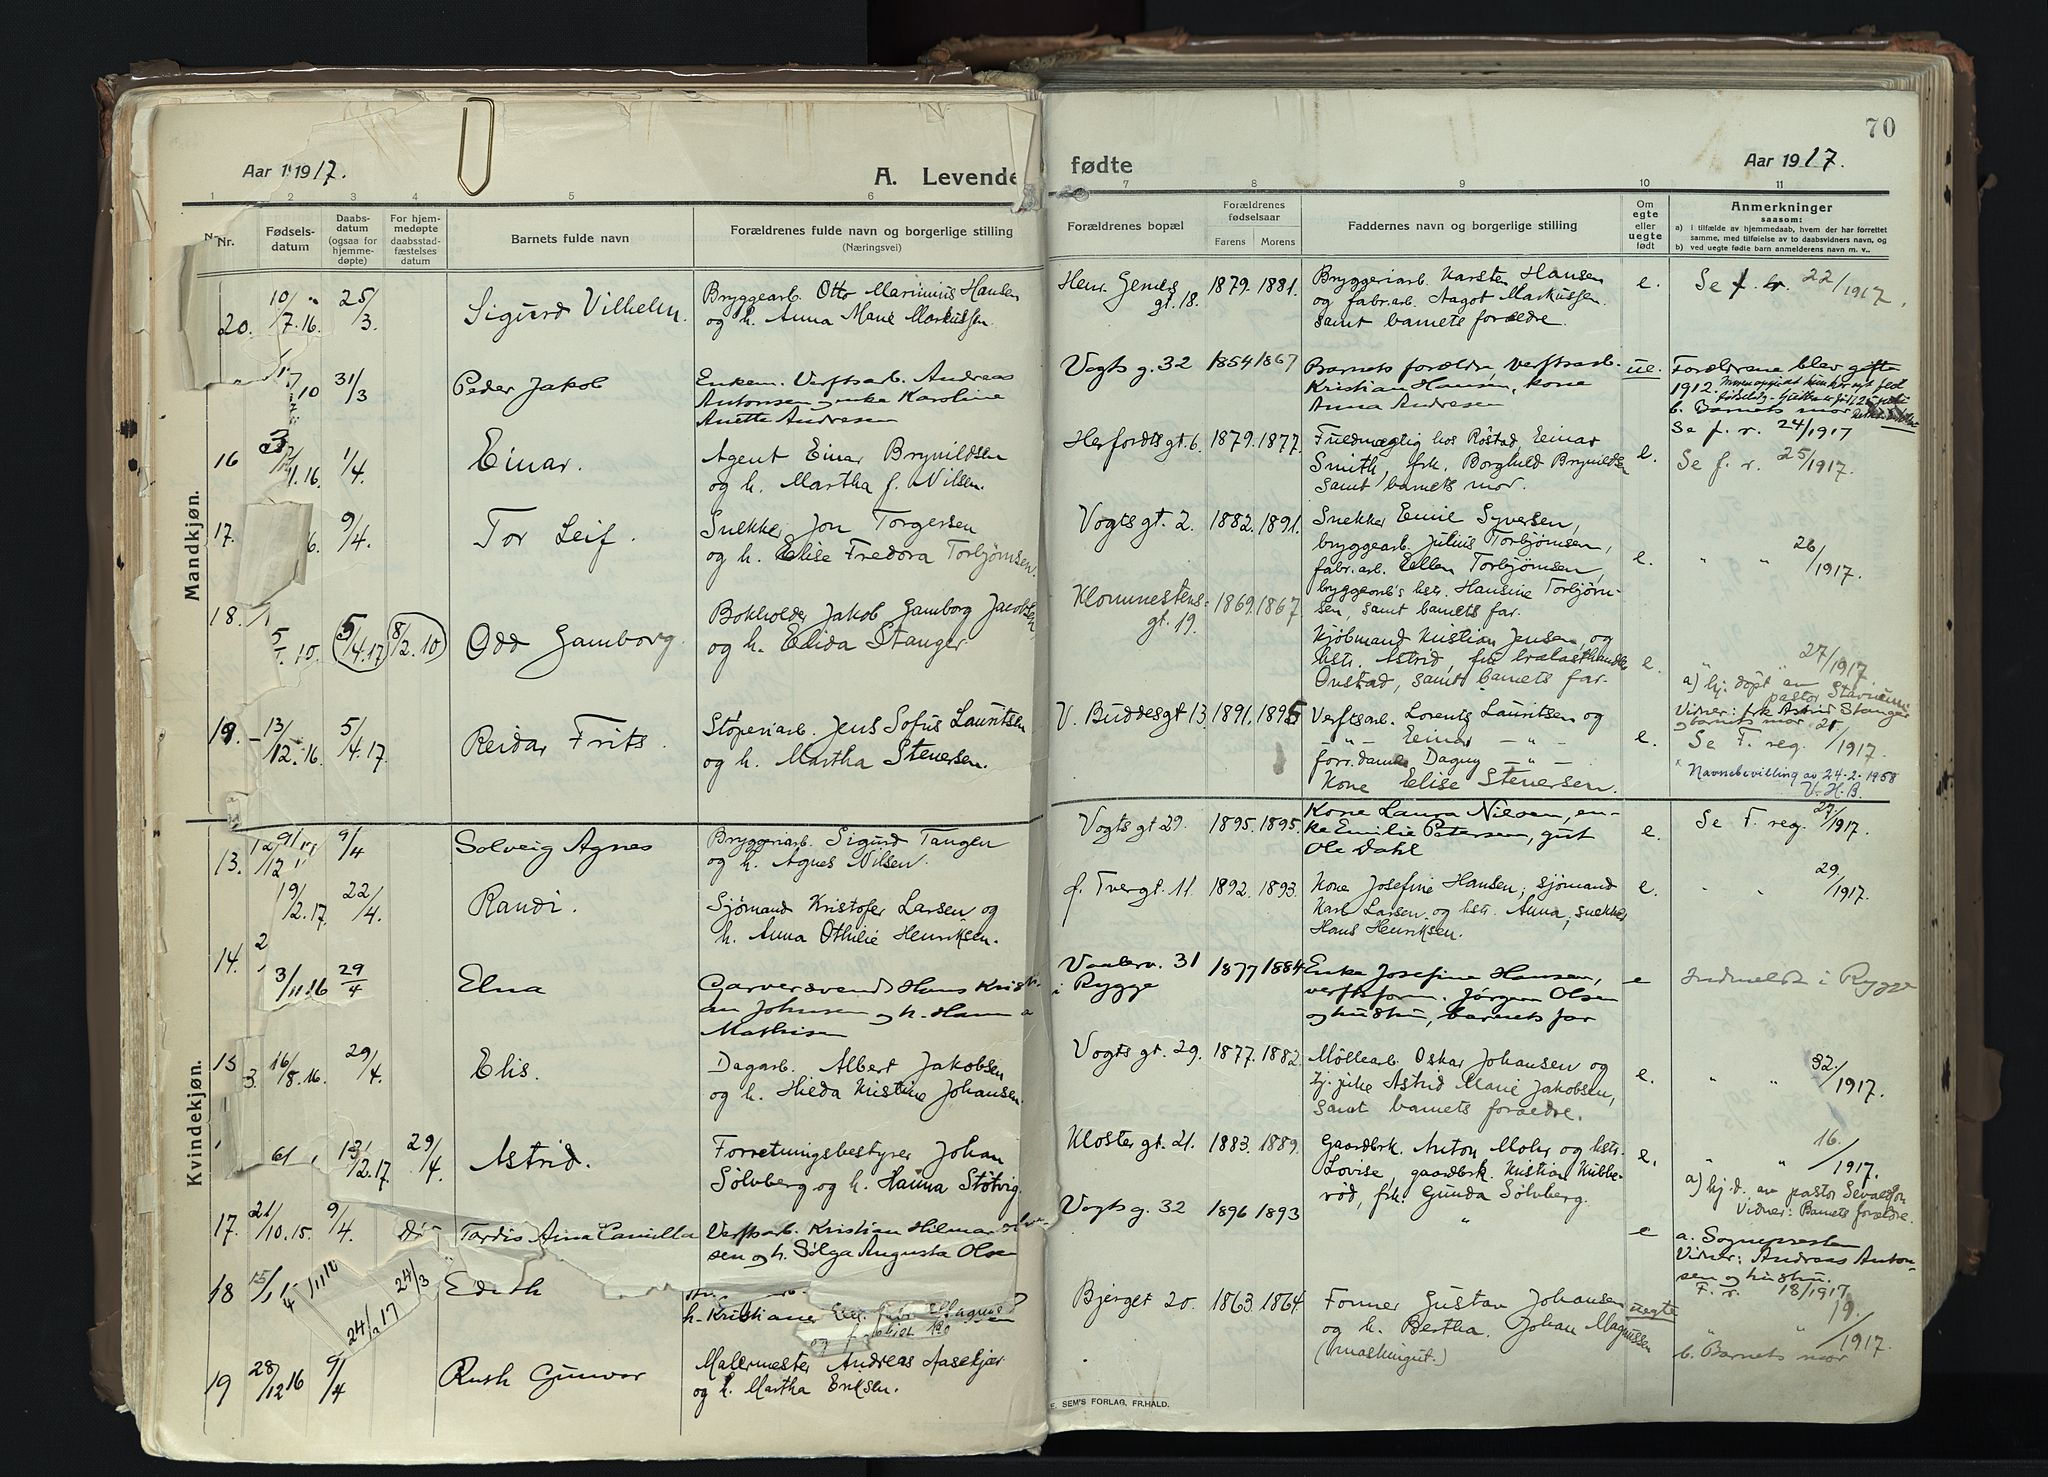 Aar 1917.
A. Levende
1 2 3 4 5 6
Nr.
Fødsels-
datum
Daabs-
datum
(ogsaa for
hjemme-
døpte)
For hjem-
medøpte
daabsstad-
fæstelses
datum
Barnets fulde navn
Forældrenes fulde navn og borgerlige stilling
(Næringsvei)
Mandkjøn.
20. 10/7.16. 25/3. Sigurd Vilhelm. Bryggearb. Otto Marinius Hansen
og h. Anna Marie Markussen.
10 31/3 Peder Jakob Enkem. Verftsarb. Andreas
Antonsen og enke Karoline
Anette Andresen
16 16. 1/4. Einar. Agent Einar Brynildsen
og h. Martha f. Nilsen.
17. 9/4. Tor Leif. Snekker Jon Torgersen
og h. Elise Fredora Torbjørnsen.
18. 10. 5/4.17 8/2.10 Odd Gamborg. Bokholder Jakob Gamborg Jacobsen
og h. Elida Stanger
19. 13/12.16. 5/4.17. Reidar Frits. Støperiarb. Jens Sofus Lauritsen
og h. Martha Stenersen.
Kvindekjøn.
13. 9/4 Solveig Agnes Bryggeriarb. Sigurd Tangen
og h. Agnes Nilsen.
19/2.17. 22/4. Randi. Sjømand Kristofer Larsen og
h. Anna Othilie Henriksen.
14. 3/11.16 29/4 Elna Garversvend Hans Kristi-
an Johnsen og h. Hanna
Mathisen
15 16/8.16. 29/4. Elis. Dagarb. Albert Jakobsen
og h. Hilda Kristine Johansen.
13/2.17. 29/4. Astrid. Forretningsbestyrer Johan
Sølvberg og h. Hanna Støtvig.
17. 21/10.15. 9/4. Tordis Aina Camilla Verftsarb. Kristian Hilmar
sen og h. Sølga Augusta Olsen
18 24/3 Edith
24/2 17 h. Kristiane
19 28/12 16 9/4 Ruth Gunvor Malermester Andreas Aasekjær
og h. Martha Eriksen.
70
fødte
Aar 1917.
7 8 9 10 11
Forældrenes bopæl
Forældrenes
fødselsaar
Farens Morens
Faddernes navn og borgerlige stilling
Om
egte
eller
uegte
født
Anmerkninger
saasom:
a) i tilfælde av hjemmedaab, hvem der har forrettet
samme, med tilføielse av to daabsvidners navn, og
b) ved uegte fødte barn anmelderens navn m. v..
Henr. Gerners
gt. 18. 1879. 1881. Bryggeriarb. Karsten Hansen
og fabr.arb. Aagot Markussen.
samt barnets forældre. e. Se f. r. 22/1917.
Vogts g. 32 1854 1867 Barnets forældre, verftsarb.
Kristian Hansen, kone
Anna Andresen ue. Forældrene blev gifte
1912.
b. Barnets mor
Se f. r. 24/1917
Herfordts gt. 6. 1879. 1877. Fuldmægtig hos Røstad Einar
Smith, frk. Borghild Brynildsen
samt barnets mor. e. Se f. r. 25/1917.
Vogts gt. 2. 1882. 1891. Snekker Emil Syversen,
bryggearb. Julius Torbjørnsen,
fabr.arb. Ellen Torbjørnsen,
bryggearb's hstr. Hansine Torbjørn-
sen, samt barnets far. e. " " 26/1917.
Klommestens-
gt. 19. 1869. 1867 Kjøbmand Kristian Jensen og
hstr. Astrid, fru trælasthandler
Onstad, samt barnets far. e. " " 27/1917.
a) hj. døpt av
pastor Stavnum
Vidner: frk Astrid Stanger
og barnets mor.
V. Buddesgt 13. 1891. 1895 Verftsarb. Lorents Lauritsen og
- " - Einar - " -
forr.dame Dagny - " -
Kone Elise Stenersen. e. Se F. reg. 21/1917.
x Navnebevilling av 24-2-1958
V. H. B.
Vogts gt 29. 1895. 1895. Kone Laura Nilsen, en-
ke Emilie Petersen, gut
Ole Dahl e. Se F. reg. 27/1917.
f. Tvergt. 11. 1892. 1893. Kone Josefine Hansen, sjømand
Karl Larsen og hstr. Anna, snekker
Hans Henriksen. e. " " 29/1917.
Vaalerv. 31
i Rygge 1877 1884 Enke Josefine Hansen,
verftsform. Jørgen Olsen
og hustru, barnets far e Indmeldt i Rygge
Vogts gt. 29. 1877. 1882. Møllearb. Oskar Johansen og
tj.pike Astrid Marie Jakobsen,
samt barnets forældre. e. " " 32/1917.
Kloster gt. 21. 1883. 1889. Gaardbrk. Anton Mohr og hstr.
Lovise, gaardbrk. Kristian Kubbe-
rød, frk. Gunda Sølvberg. e. " " 16/1917.
a) hj.d. av pastor Sevaldson
Vidner: Barnets forældre.
Vogts g. 32 1896 1893 " e a. Sognepresten
Vidner: Andreas Anton-
sen og hustru.
F. r. 18/1917
Bjerget 20. 1863. 1864. Former Gustav Johansen
og h. Bertha. Johan Magnussen
(maskingut.) uegte " " 19/1917.
b. Barnets mor
E. SEM'S FORLAG, FR.HALD.